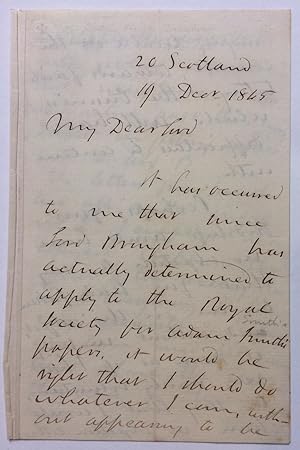 20 Scotland
19 Decr 1845
My Dear Lord
It has occurred
to me that since
Lord Brougham has
actually determined to
apply to the Royal
Society for Adam Smith's
Smith's
papers, it would be
right that I should do
whatever I can, with-
out appearing to be